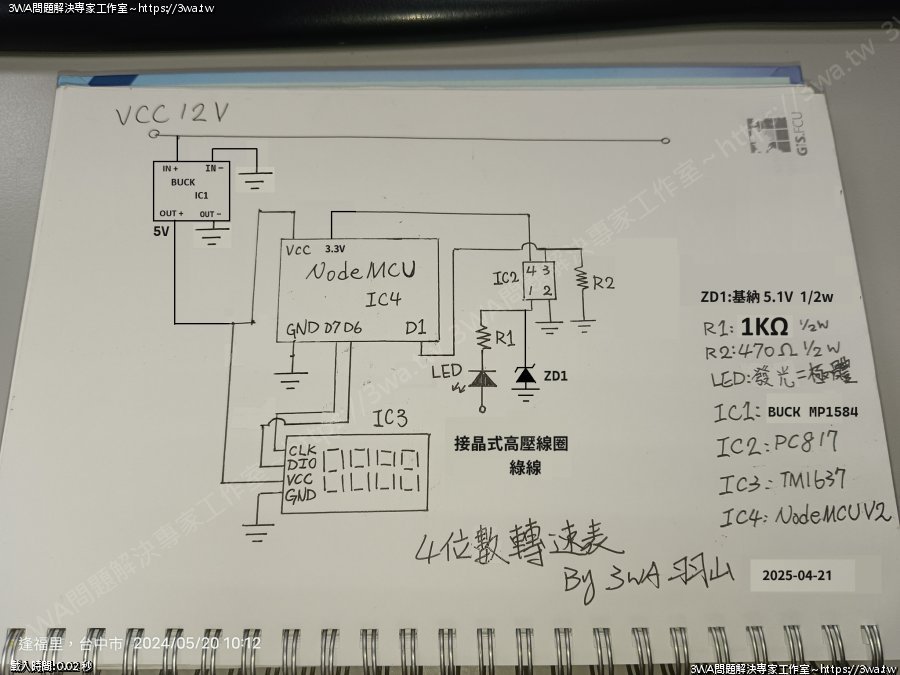 3WA問題解決專家工作室~https://3wa.tw
VCC 12V
GIS.FCU
IN+ IN-
BUCK
IC1
OUT+ OUT-
5V
VCC 3.3V
NodeMCU
IC4
GND D7 D6 D1
IC2
4 3
1 2
R2
R1
LED
ZD1
ZD1:基納 5.1V 1/2w
R1: 1KΩ 1/2W
R2:470Ω 1/2W
LED:發光二極體
IC1: BUCK MP1584
IC2: PC817
IC3: TM1637
IC4: NodeMCU V2
IC3
CLK
DIO
VCC
GND
接晶式高壓線圈
綠線
4位數轉速表
By 3WA 羽山
2025-04-21
3WA問題解決專家工作室~https://3wa.tw
逢福里,台中市 2024/05/20 10:12
載入時間:0.02 秒
3WA問題解決專家工作室~https://3wa.tw